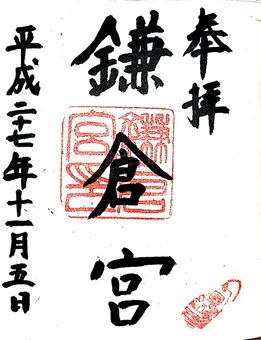 奉拝
鎌倉宮
平成二十七年十一月五日